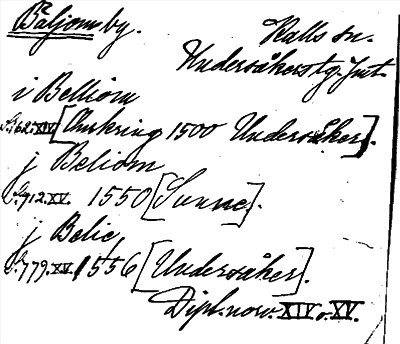 Bäljom by. Kalls sn.
Undersåkers tg. Jmt.
i Belliom
S. 62. XIV. [Omkring 1500 Undersåker].
j Beliom
S. 712. XV. 1550 [Sunne].
j Belie,
S. 779. XV. 1556 [Undersåker].
Dipl. norv. XIV o. XV.